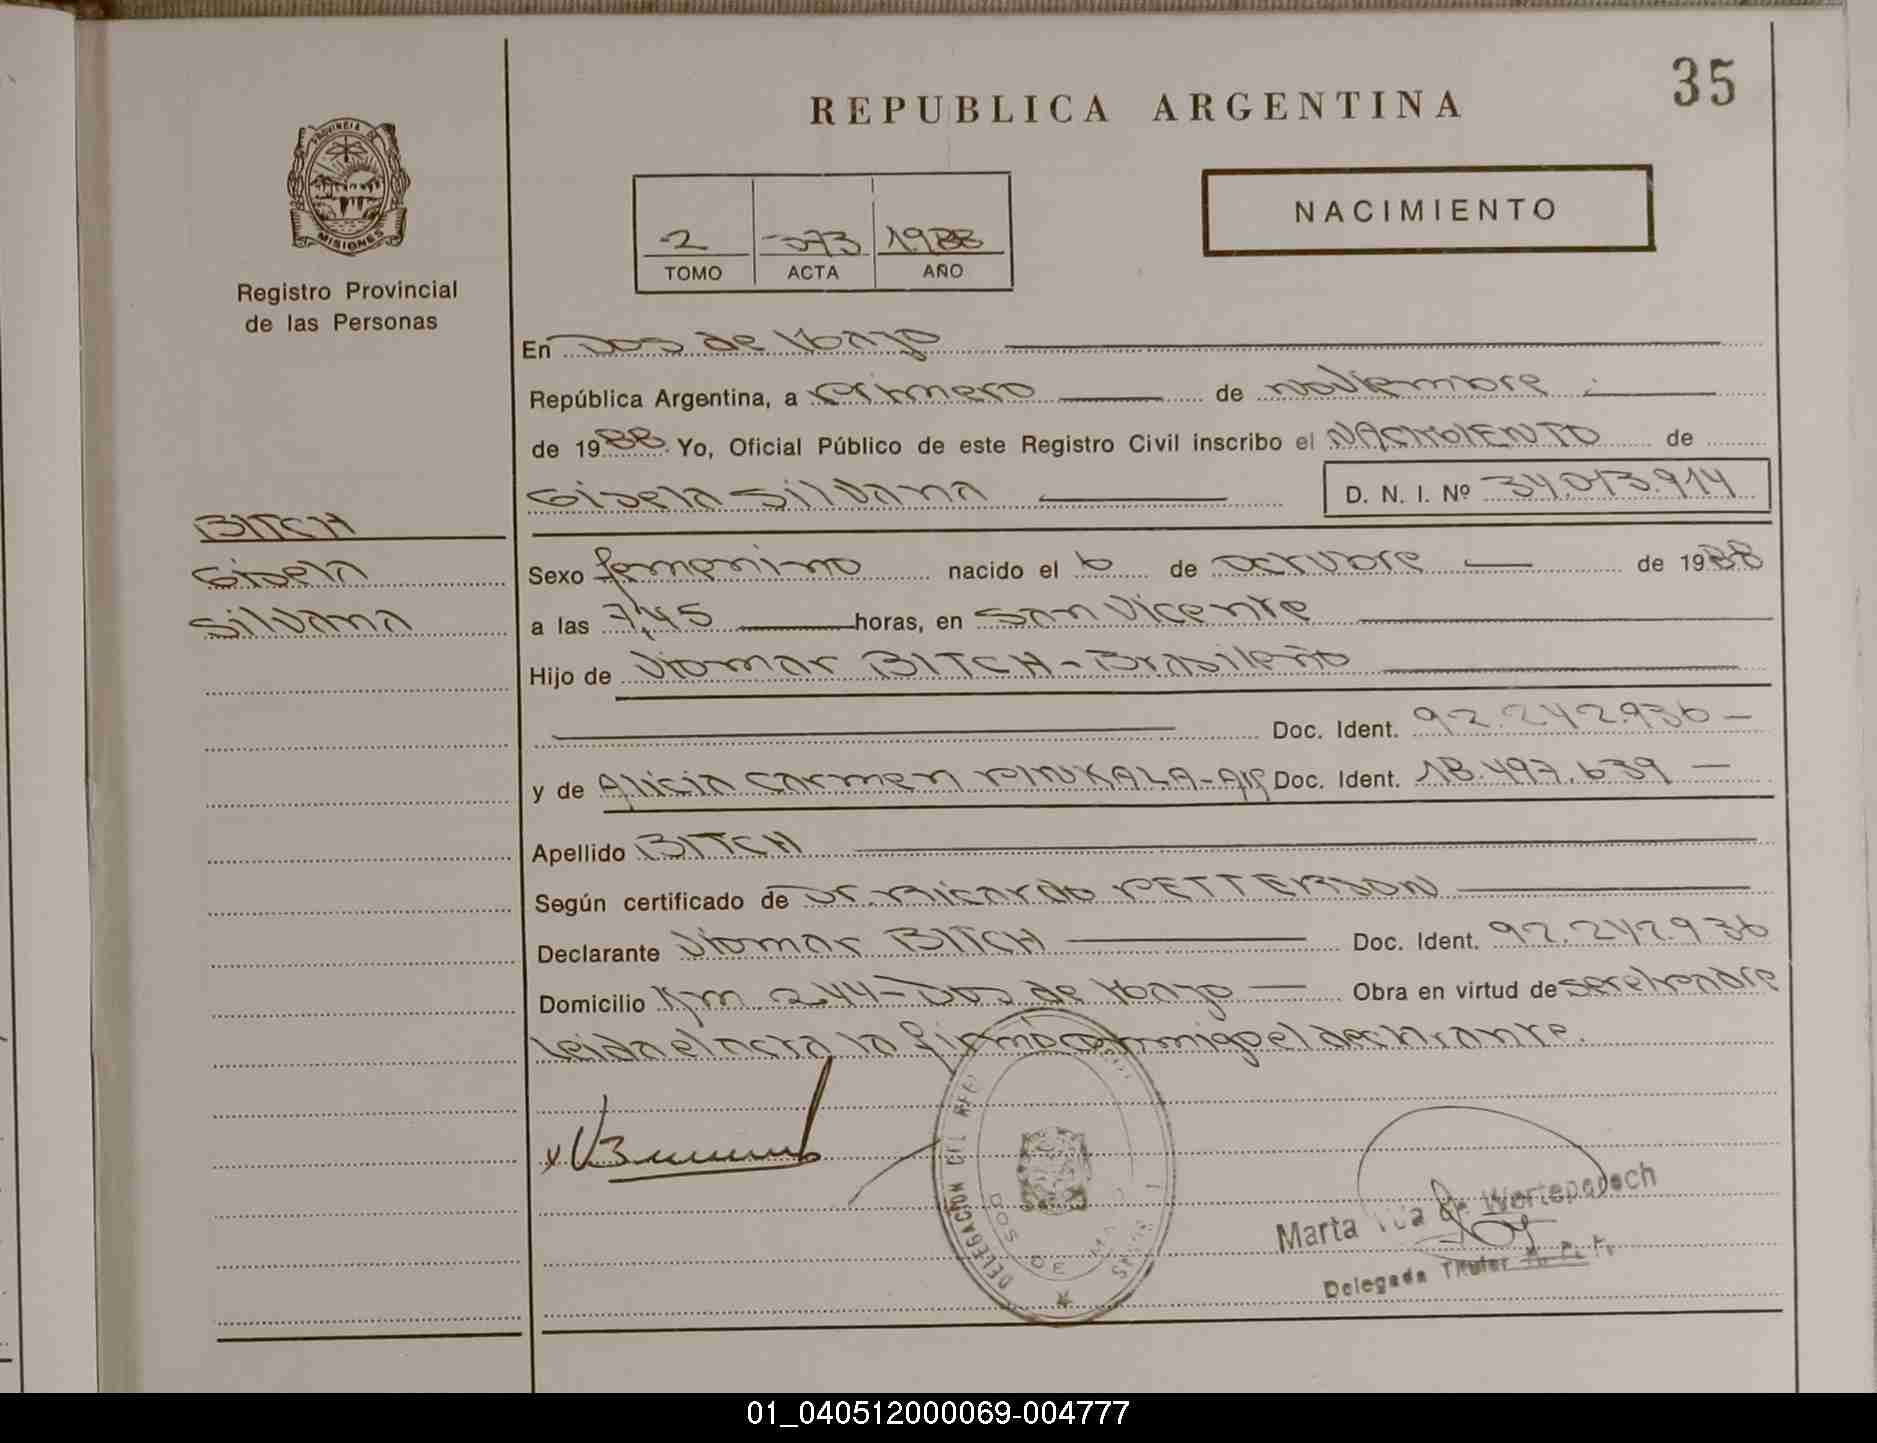 35
REPUBLICA ARGENTINA
PROVINCIA DE
MISIONES
Registro Provincial
de las Personas
NACIMIENTO
2 073 1988
TOMO ACTA AÑO
En Dos de Mayo
República Argentina, a primero de noviembre
de 1988 Yo, Oficial Público de este Registro Civil inscribo el NACIMIENTO de
Gisela Silvana D. N. I. Nº 34.013.914
BITCH
Gisela
Silvana
Sexo femenino nacido el 6 de octubre de 1988
a las 7,45 horas, en San Vicente
Hijo de Viomar BITCH - Brasileño
Doc. Ident. 92.242.936
y de Alicia Carmen PINKALA - Arg Doc. Ident. 18.497.639
Apellido BITCH
Según certificado de Dr. Ricardo PETTERSON
Declarante Viomar BITCH Doc. Ident. 92.242.936
Domicilio Km 244 - Dos de Mayo Obra en virtud de ser el padre
Leida el acta la firmó conmigo el declarante.
DELEGACION DEL REG
DOS DE MAYO
Marta de Wertepasch
Delegada Titular
01_040512000069-004777